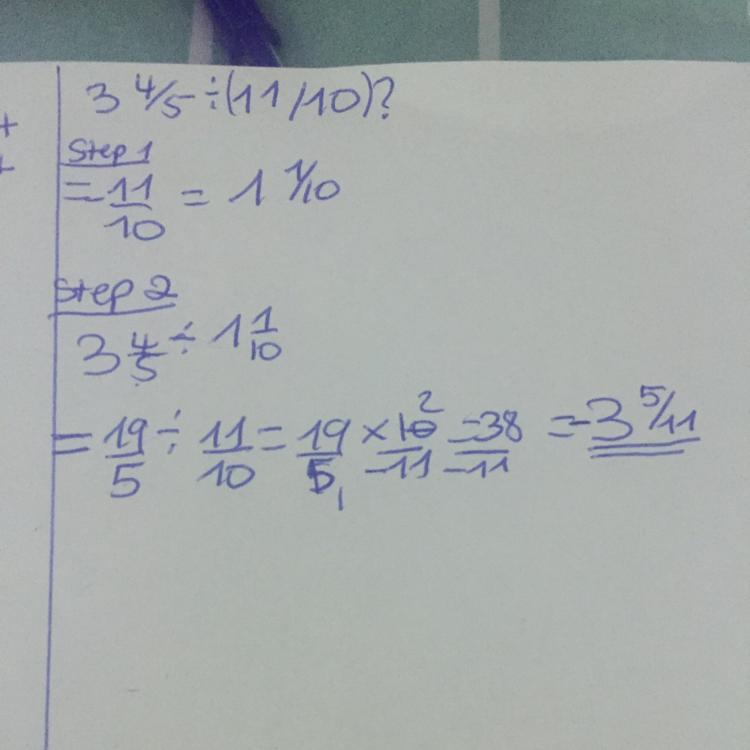 3 4/5 ÷ (11/10)?
Step 1
= 11/10 = 1 1/10
Step 2
3 4/5 ÷ 1 1/10
= 19/5 ÷ 11/10 = 19/5 1 × 10 2/-11 = 38/-11 = -3 5/11
+
+